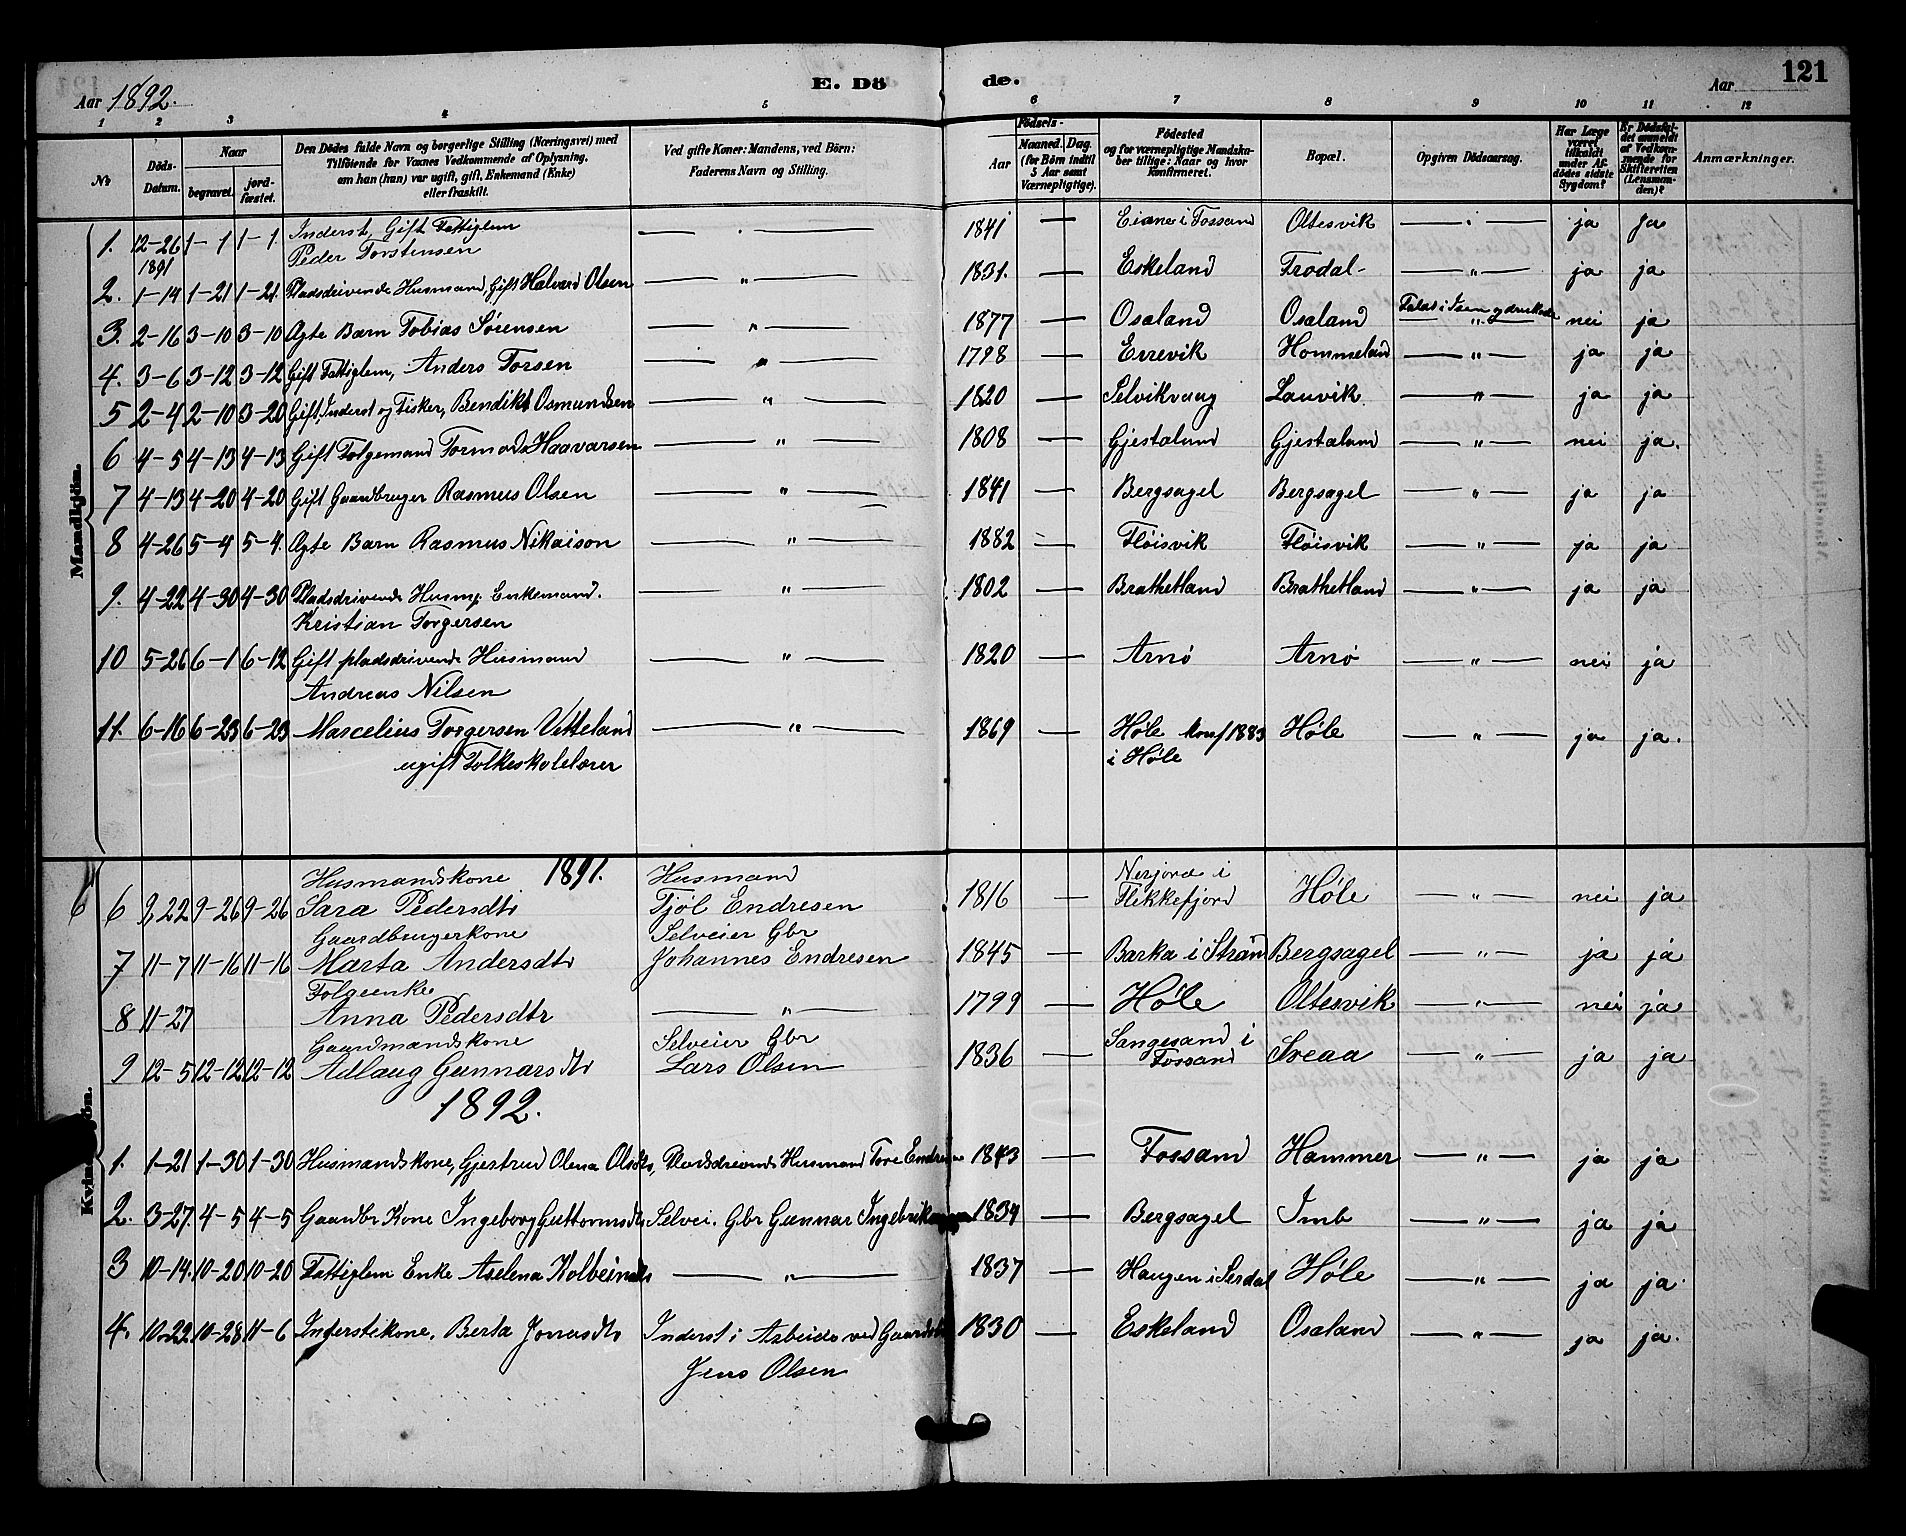 Aar 1892. E. Dö de. Aar 121
1 2 3 4 5 6 7 8 9 10 11 12
No Döds-Datum. Naar begravet. jordfæstet. Den Dödes fulde Navn og borgerlige Stilling (Næringsvei) med Tilföiende for Voxnes Vedkommende af Oplysning, om han (hun) var ugift, gift, Enkemand (Enke) eller fraskilt. Ved gifte Koner: Mandens, ved Börn: Faderens Navn og Stilling. Födsels- Aar Maaned. Dag. (for Börn indtil 5 Aar samt Værnepligtige). Födested og for værnepligtige Mandskaber tillige: Naar og hvor konfirmeret. Bopæl. Opgiven Dödsaarsag. Har Læge været tilkaldt under Afdödes sidste Sygdom? Er Dödsfaldet anmeldt af Vedkommende for Skifteretten (Lensmanden)? Anmærkninger.
Mandkjön.
1. 12-26 1891 1-1 1-1. Inderst, Gift Fattiglem Peder Torstensen — " — 1841 — Eiane i Fossand Oltesvik — " — ja ja
2. 1-14 1-21 1-21. Pladsdrivende Husmand, Gift Halvard Olsen — " — 1831. — Eskeland Frodal — " — ja ja
3. 2-16 3-10 3-10 Ægte Barn Tobias Sørensen — " — 1877 — Osaland Osaland Faldt i Isen og druknede nei ja
4. 3-6 3-12 3-12 Gift Fattiglem, Anders Torsen — " — 1798 — Errevik Hommeland — " — ja ja
5 2-4 2-10 3-20 Gift, Inderst og Fisker, Bendikt Osmundsen — " — 1820 — Selvikvaag Lauvik — " — ja ja
6 4-5 4-13 4-13 Gift Folgemand Tormod Haavarsen — " — 1808 — Gjestalund Gjestalund — " — nei ja.
7 4-13 4-20 4-20 Gift Gaardbruger Rasmus Olsen — " — 1841 — Bergsagel Bergsagel — " — ja ja
8 4-26 5-4 5-4. Ægte Barn Rasmus Nikaison — " — 1882 — Fløisvik Fløisvik — " — ja ja
9. 4-22 4-30 4-30 Pladsdrivende Husm; Enkemand. Kristian Torgersen — " — 1802 — Brathetland Brathetland — " — ja ja
10 5-26 6-1 6-12 Gift pladsdrivende Husmand Andreas Nilsen — " — 1820 — Arnø Arnø — " — nei ja
11. 6-16 6-23 6-23 Marcelius Torgersen Vetteland ugift Folkeskolelærer — " — 1869 — Høle konf 1883 i Høle Høle — " — ja ja.
Kvindekjön.
1891.
6 6 9 22 9-26 9-26 Husmandskone Sara Pedersdtr Husmand Tjøl Endresen 1816 — i Flekkefjord Høle — " — nei ja
7 11-7 11-16 11-16 Gaardbrugerkone Marta Andersdtr Selveier Gbr Johannes Endresen 1845 — Barka i Strand Bergsagel — " — ja ja
8 11-27 Folgeenke Anna Pedersdtr — " — 1799 — Høle Oltesvik — " — nei ja
9 12-5 12-12 12-12 Gaardmandskone Adlaug Gunnarsdtr Selveier Gbr Lars Olsen 1836 — Sangesand i Fossand Sveaa — " — ja ja
1892.
1. 1-21 1-30 1-30 Husmandskone, Gjertrud Olena Olsdtr, Pladsdrivende Husmand Tore Endresen 1843 — Fossand Hammer — " — ja ja
2. 3-27. 4-5 4-5 Gaardbr Kone Ingeborg Guttormsdtr Selvei. Gbr Gunnar 1834 — Bergsagel Imb — " — ja ja
3 10-14. 10-20 10-20 Fattiglem Enke Aselena Kolbeinsdtr — " — 1837 — Haugen i Serdal Høle — " — ja ja.
4. 10-22. 10-28 11-6 Inderstkone, Berta Jonasdtr Inderst i Arbeide ved Jens Olsen 1830 — Eskeland Osaland — " — ja ja.